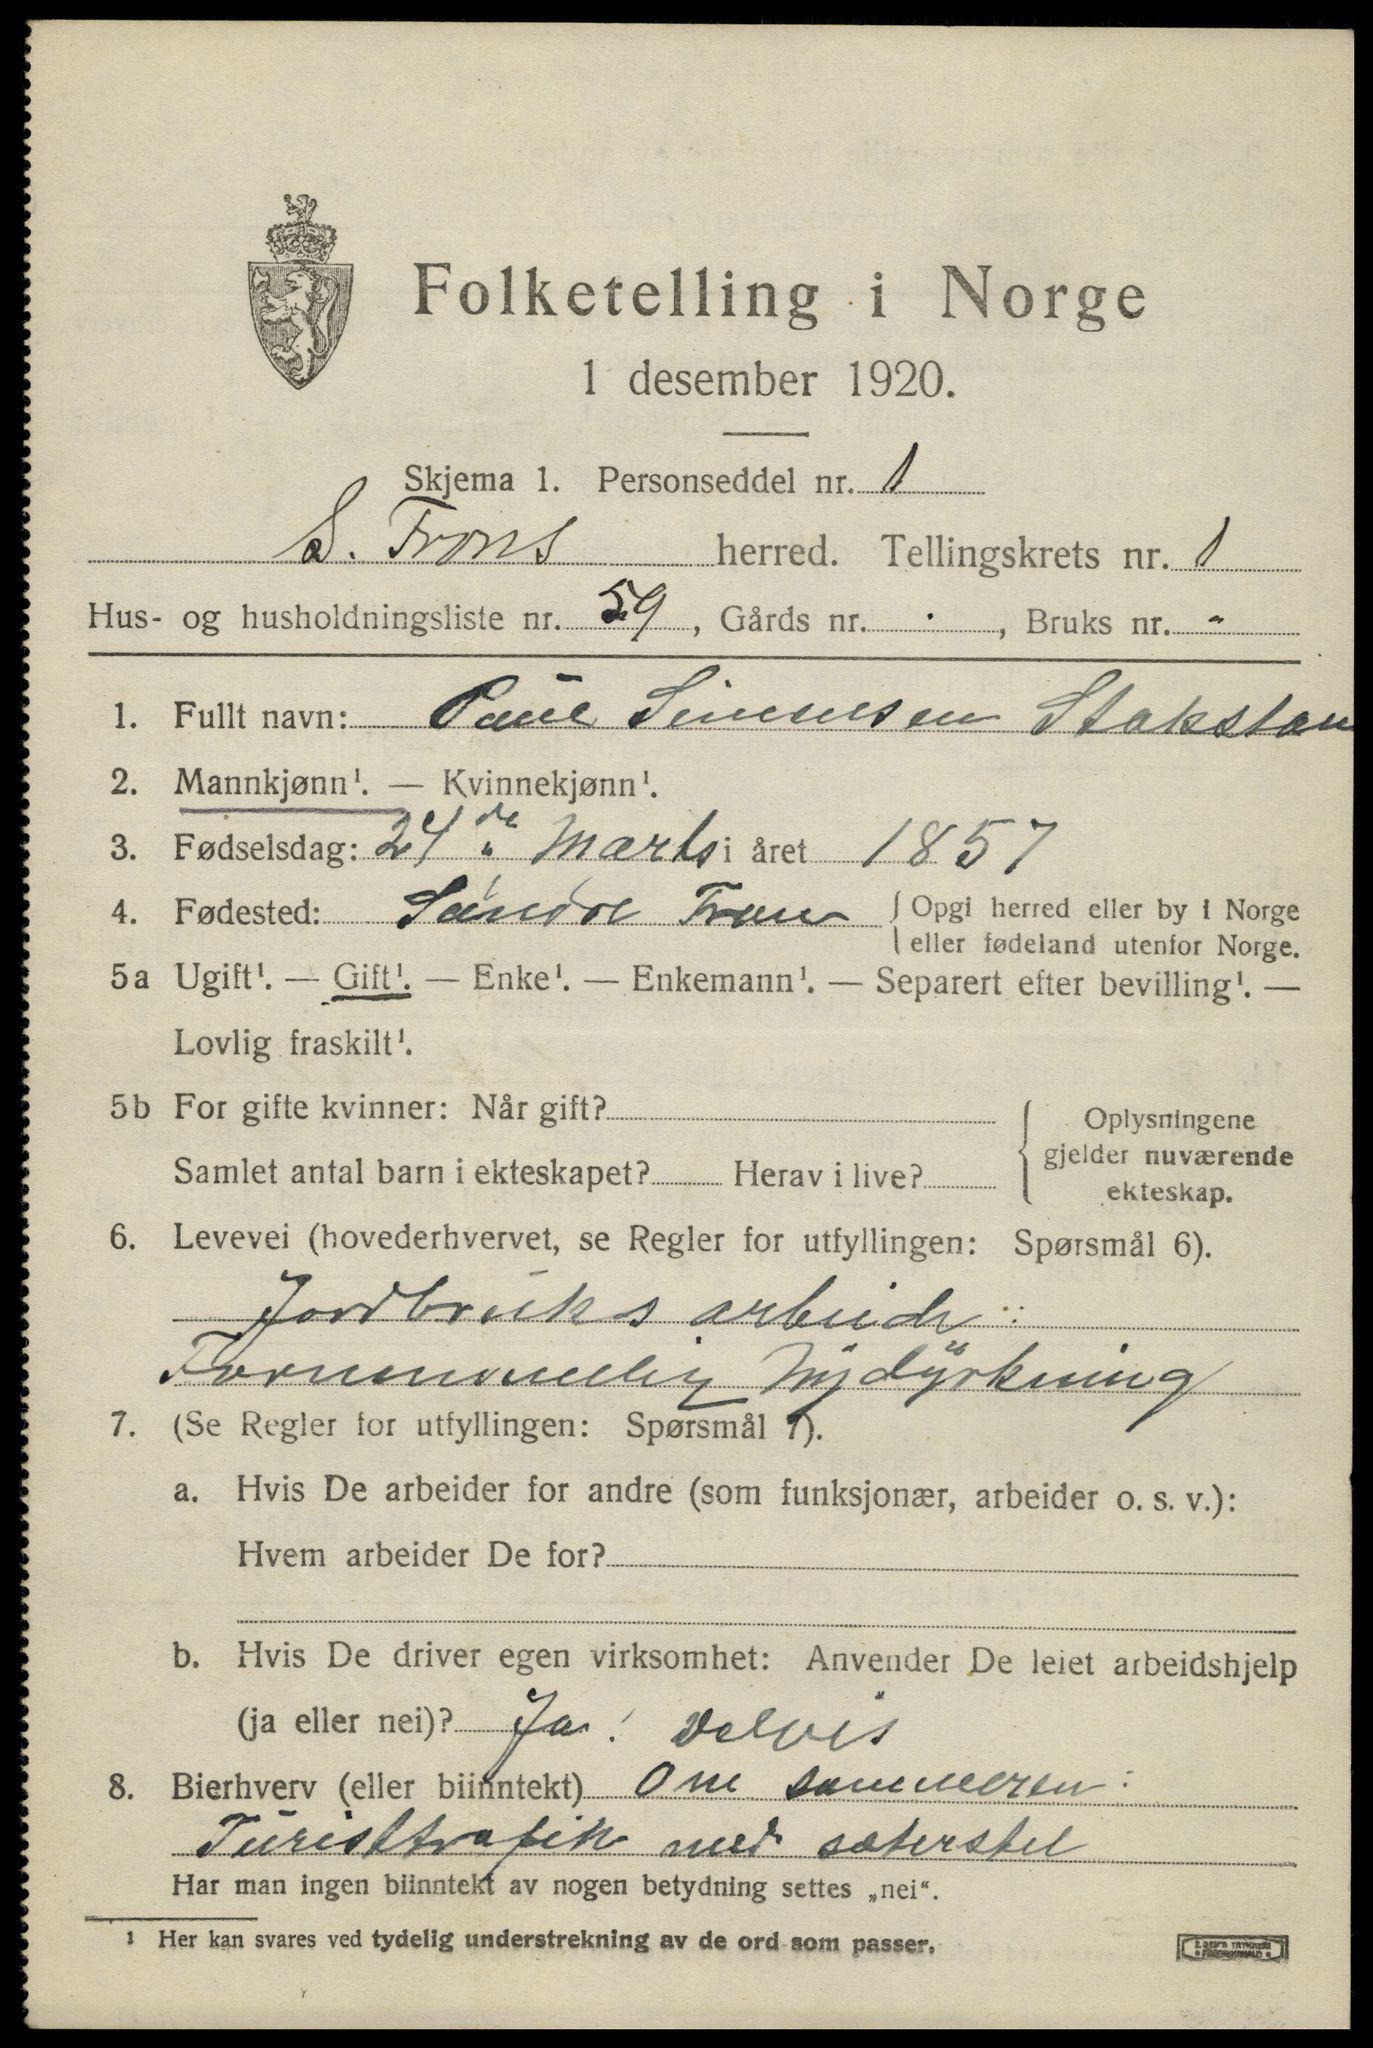 Folketelling i Norge
1 desember 1920.
Skjema 1. Personseddel nr. 1
S. Frons herred. Tellingskrets nr. 1
Hus- og husholdningsliste nr. 59, Gårds nr. , Bruks nr.
1. Fullt navn: Paul Simensen Stakstan
2. Mannkjønn¹. — Kvinnekjønn¹.
3. Fødselsdag: 24de Marts i året 1857
4. Fødested: Søndre Fron { Opgi herred eller by i Norge
eller fødeland utenfor Norge.
5a Ugift¹. — Gift¹. — Enke¹. — Enkemann¹. — Separert efter bevilling¹. —
Lovlig fraskilt¹.
5b For gifte kvinner: Når gift?
Samlet antal barn i ekteskapet? Herav i live?
Oplysningene
gjelder nuværende
ekteskap.
6. Levevei (hovederhvervet, se Regler for utfyllingen: Spørsmål 6).
Jordbruks arbeide:
Fornemmelig Nydyrkning
7. (Se Regler for utfyllingen: Spørsmål 7).
a. Hvis De arbeider for andre (som funksjonær, arbeider o. s. v.):
Hvem arbeider De for?
b. Hvis De driver egen virksomhet: Anvender De leiet arbeidshjelp
(ja eller nei)? Ja! delvis
8. Bierhverv (eller biinntekt) Om sommeren:
Turisttrafik med sæterstel
Har man ingen biinntekt av nogen betydning settes „nei“.
¹ Her kan svares ved tydelig understrekning av de ord som passer.